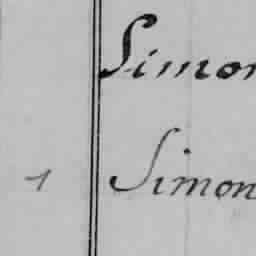 Simon
1 Simon